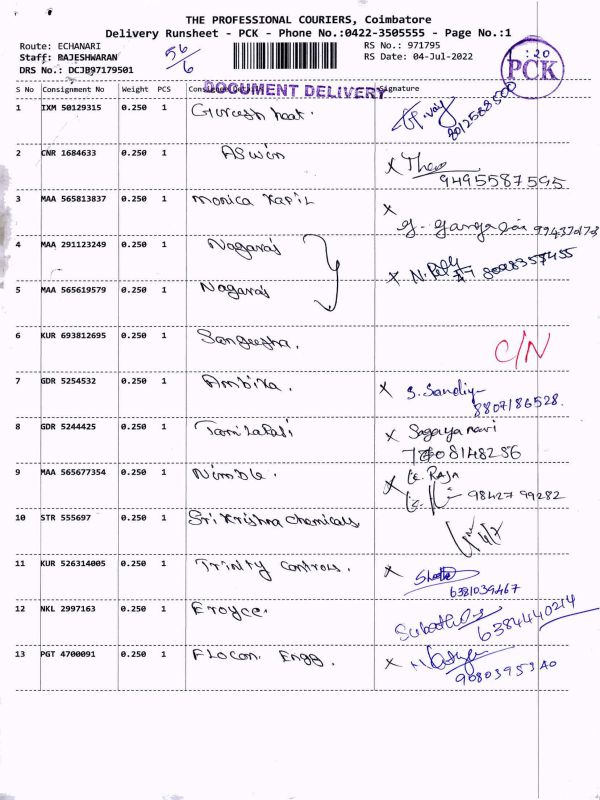 THE PROFESSIONAL COURIERS, Coimbatore
Delivery Runsheet - PCK - Phone No.:0422-3505555 - Page No.:1
Route: ECHANARI
RS No.: 971795
Staff: RAJESHWARAN
RS Date: 04-Jul-2022
DRS No.: DCJB97179501
56/6
:20
PCK
S No Consignment No Weight PCS Signature
DOCUMENT DELIVERY
1 IXM 50129315 0.250 1
2 CNR 1684633 0.250 1 Aswin
9495587595
3 MAA 565813837 0.250 1 Monica Kapil
4 MAA 291123249 0.250 1 Nagaraj
5 MAA 565619579 0.250 1 Nagaraj
6 KUR 693812695 0.250 1 Sangeetha. C/N
7 GDR 5254532 0.250 1 Ambika. X S. Sandiya
8807186528.
8 GDR 5244425 0.250 1 X
9 MAA 565677354 0.250 1 Nimble. X K. RAJA
98427 99282
10 STR 555697 0.250 1 Sri Krishna Chemicals
4/7
11 KUR 526314005 0.250 1 Trinity Controls. X
6381039467
12 NKL 2997163 0.250 1 Froyce.
6384440214
13 PGT 4700091 0.250 1 Flocon. Engg. X
9080395340